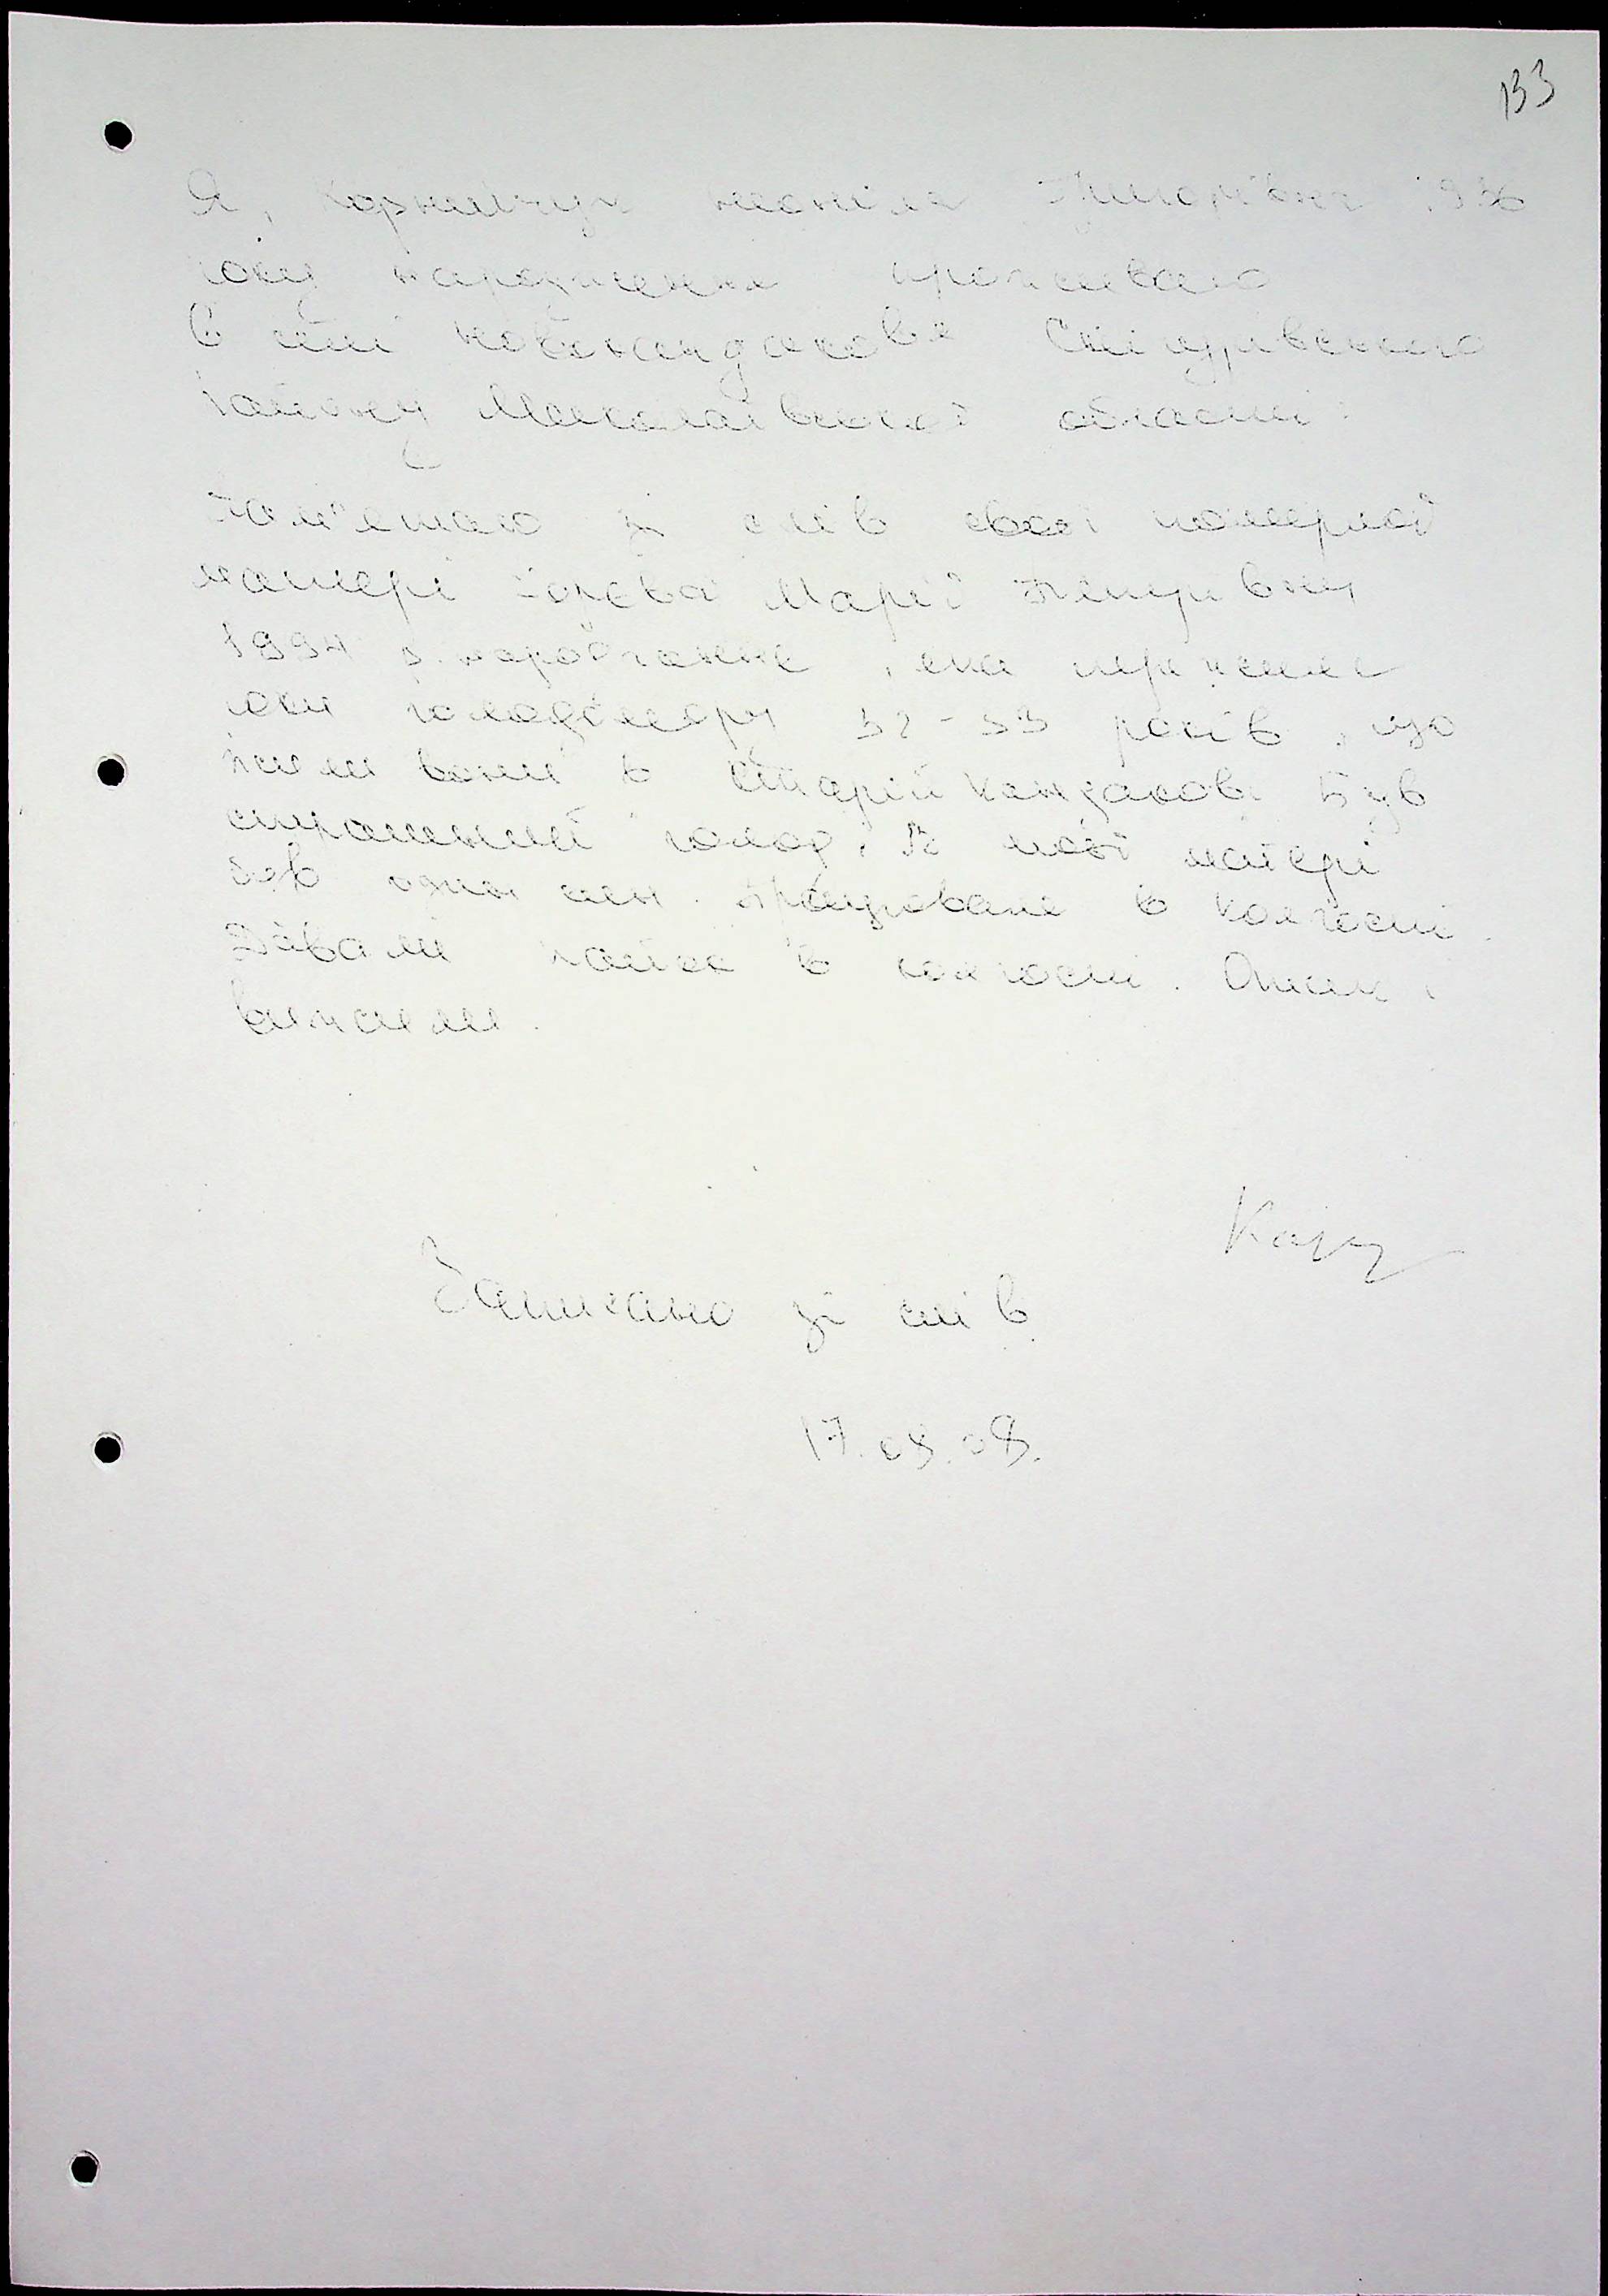 133
Я, Корнийчук 1936
року народження проживаю
в смт Новокондакове Снігурівського
району Миколаївської області.
Пам'ятаю зі слів своєї померлої
матері Марії
р. народження, яка пережила
роки голодомору 32-33 років, що
жили вони в Старій Кондакові. Був
страшний голод. В моєї матері
був один син. Працювала в колгоспі.
Давали пайок в колгоспі. Отак і
вижили.
Записано зі слів
17.08.08.